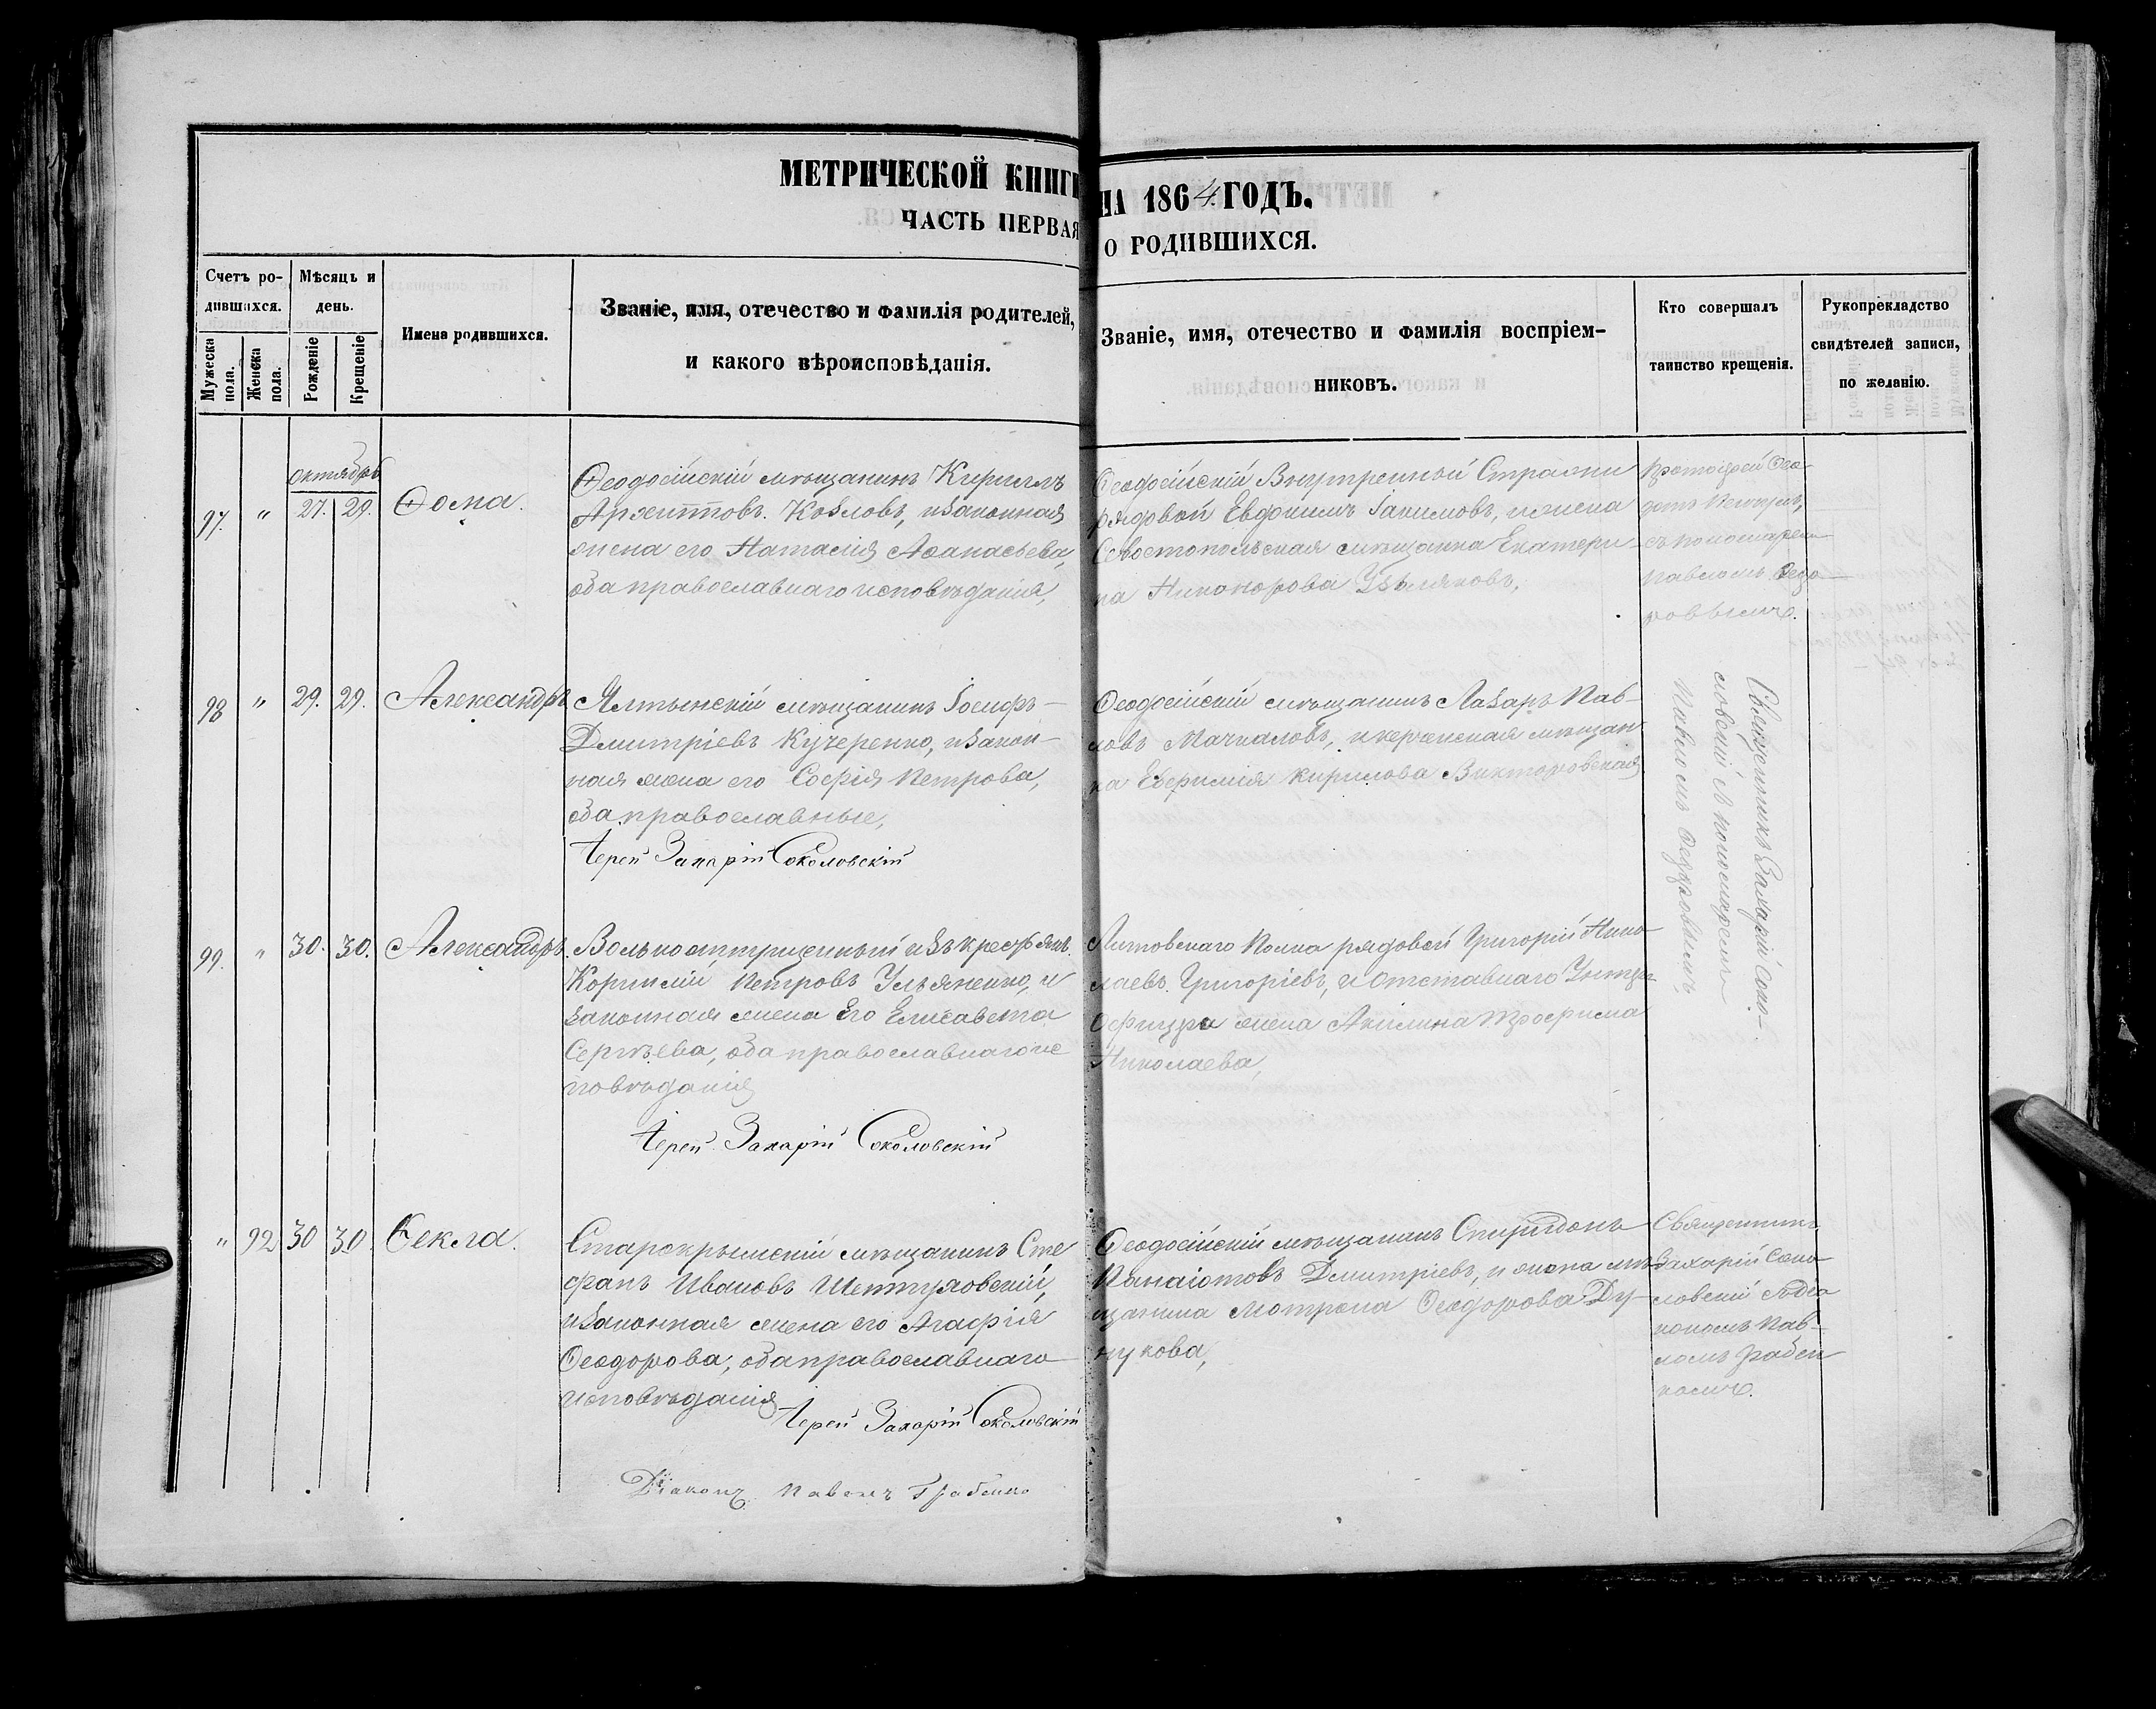 МЕТРИЧЕСКОЙ КНИГИ НА 1864 ГОДЪ.
ЧАСТЬ ПЕРВАЯ О РОДИВШИХСЯ.
Счетъ ро-
дившихся.
Мужеска пола.
Женска пола.
Мѣсяцъ и
день.
Рожденіе
Крещеніе
Имена родившихся.
Званіе, имя, отчество и фамилія родителей,
и какого вѣроисповѣданія.
Званіе, имя, отечество и фамилія воспріем-
никовъ.
Кто совершалъ
таинство крещенія.
Рукопрекладство
свидѣтелей записи,
по желанію.
Октябрь
97. " 27. 29. Ѳома.
Ѳеодосійскій мѣщанинъ Кириллъ
Козловъ, и законная
жена его Наталія Аѳанасьева,
оба православнаго исповѣданія,
Ѳеодосійскій Внутренной Стражи
рядовой Евдокимъ Іакимовъ, и жена
Севостопольская мѣщанка Екатери-
на Никонорова
Протоіерей Ѳео-
съ пономаремъ
Павломъ Ѳедо-
ровымъ.
98 " 29. 29. Александръ
Ялтынскій мѣщанинъ Іосифъ
Дмитріевъ Кучеренко, и закон-
ная жена его Софія Петрова,
оба православные,
Іерей Захарій Соколовскій
Ѳеодосійскій мѣщанинъ Лазарь Пав-
ловъ Мачкаловъ, и керченская мѣщан
ка Евфимія Кирилова Викторовская
Священникъ Захарій Соко-
ловскій съ пономаремъ
Павломъ Ѳедоровымъ,
99. " 30. 30. Александръ
Вольноотпущенный изъ крестьянъ
Корнилій Петровъ Ульяненко, и
законная жена Его Елисавета
Сергѣева, оба православнаго ис
повѣданія
Іерей Захарій Соколовскій
Литовскаго Полка рядовой Григорій Нико-
лаевъ Григоріевъ, и Отставнаго Унтеръ
Офицера жена Акилина Трофима
Николаева,
" 92 30 30. Ѳекла.
Старокрымскій мѣщанинъ Сте
фанъ Ивановъ Шептуховскій,
и законная жена его Агафія
Ѳеодорова, оба православнаго
исповѣданія
Іерей Захарій Соколовскій
Діаконъ Павелъ Грабенко
Ѳеодосійскій мѣщанинъ Спиридонъ
Панаіотовъ Дмитріевъ, и жена мѣ-
щанина Мотрона Ѳеодорова Ду-
нукова,
Священникъ
Захарій Соко-
ловскій съ діа
кономъ Пав-
ломъ Грабен
комъ.